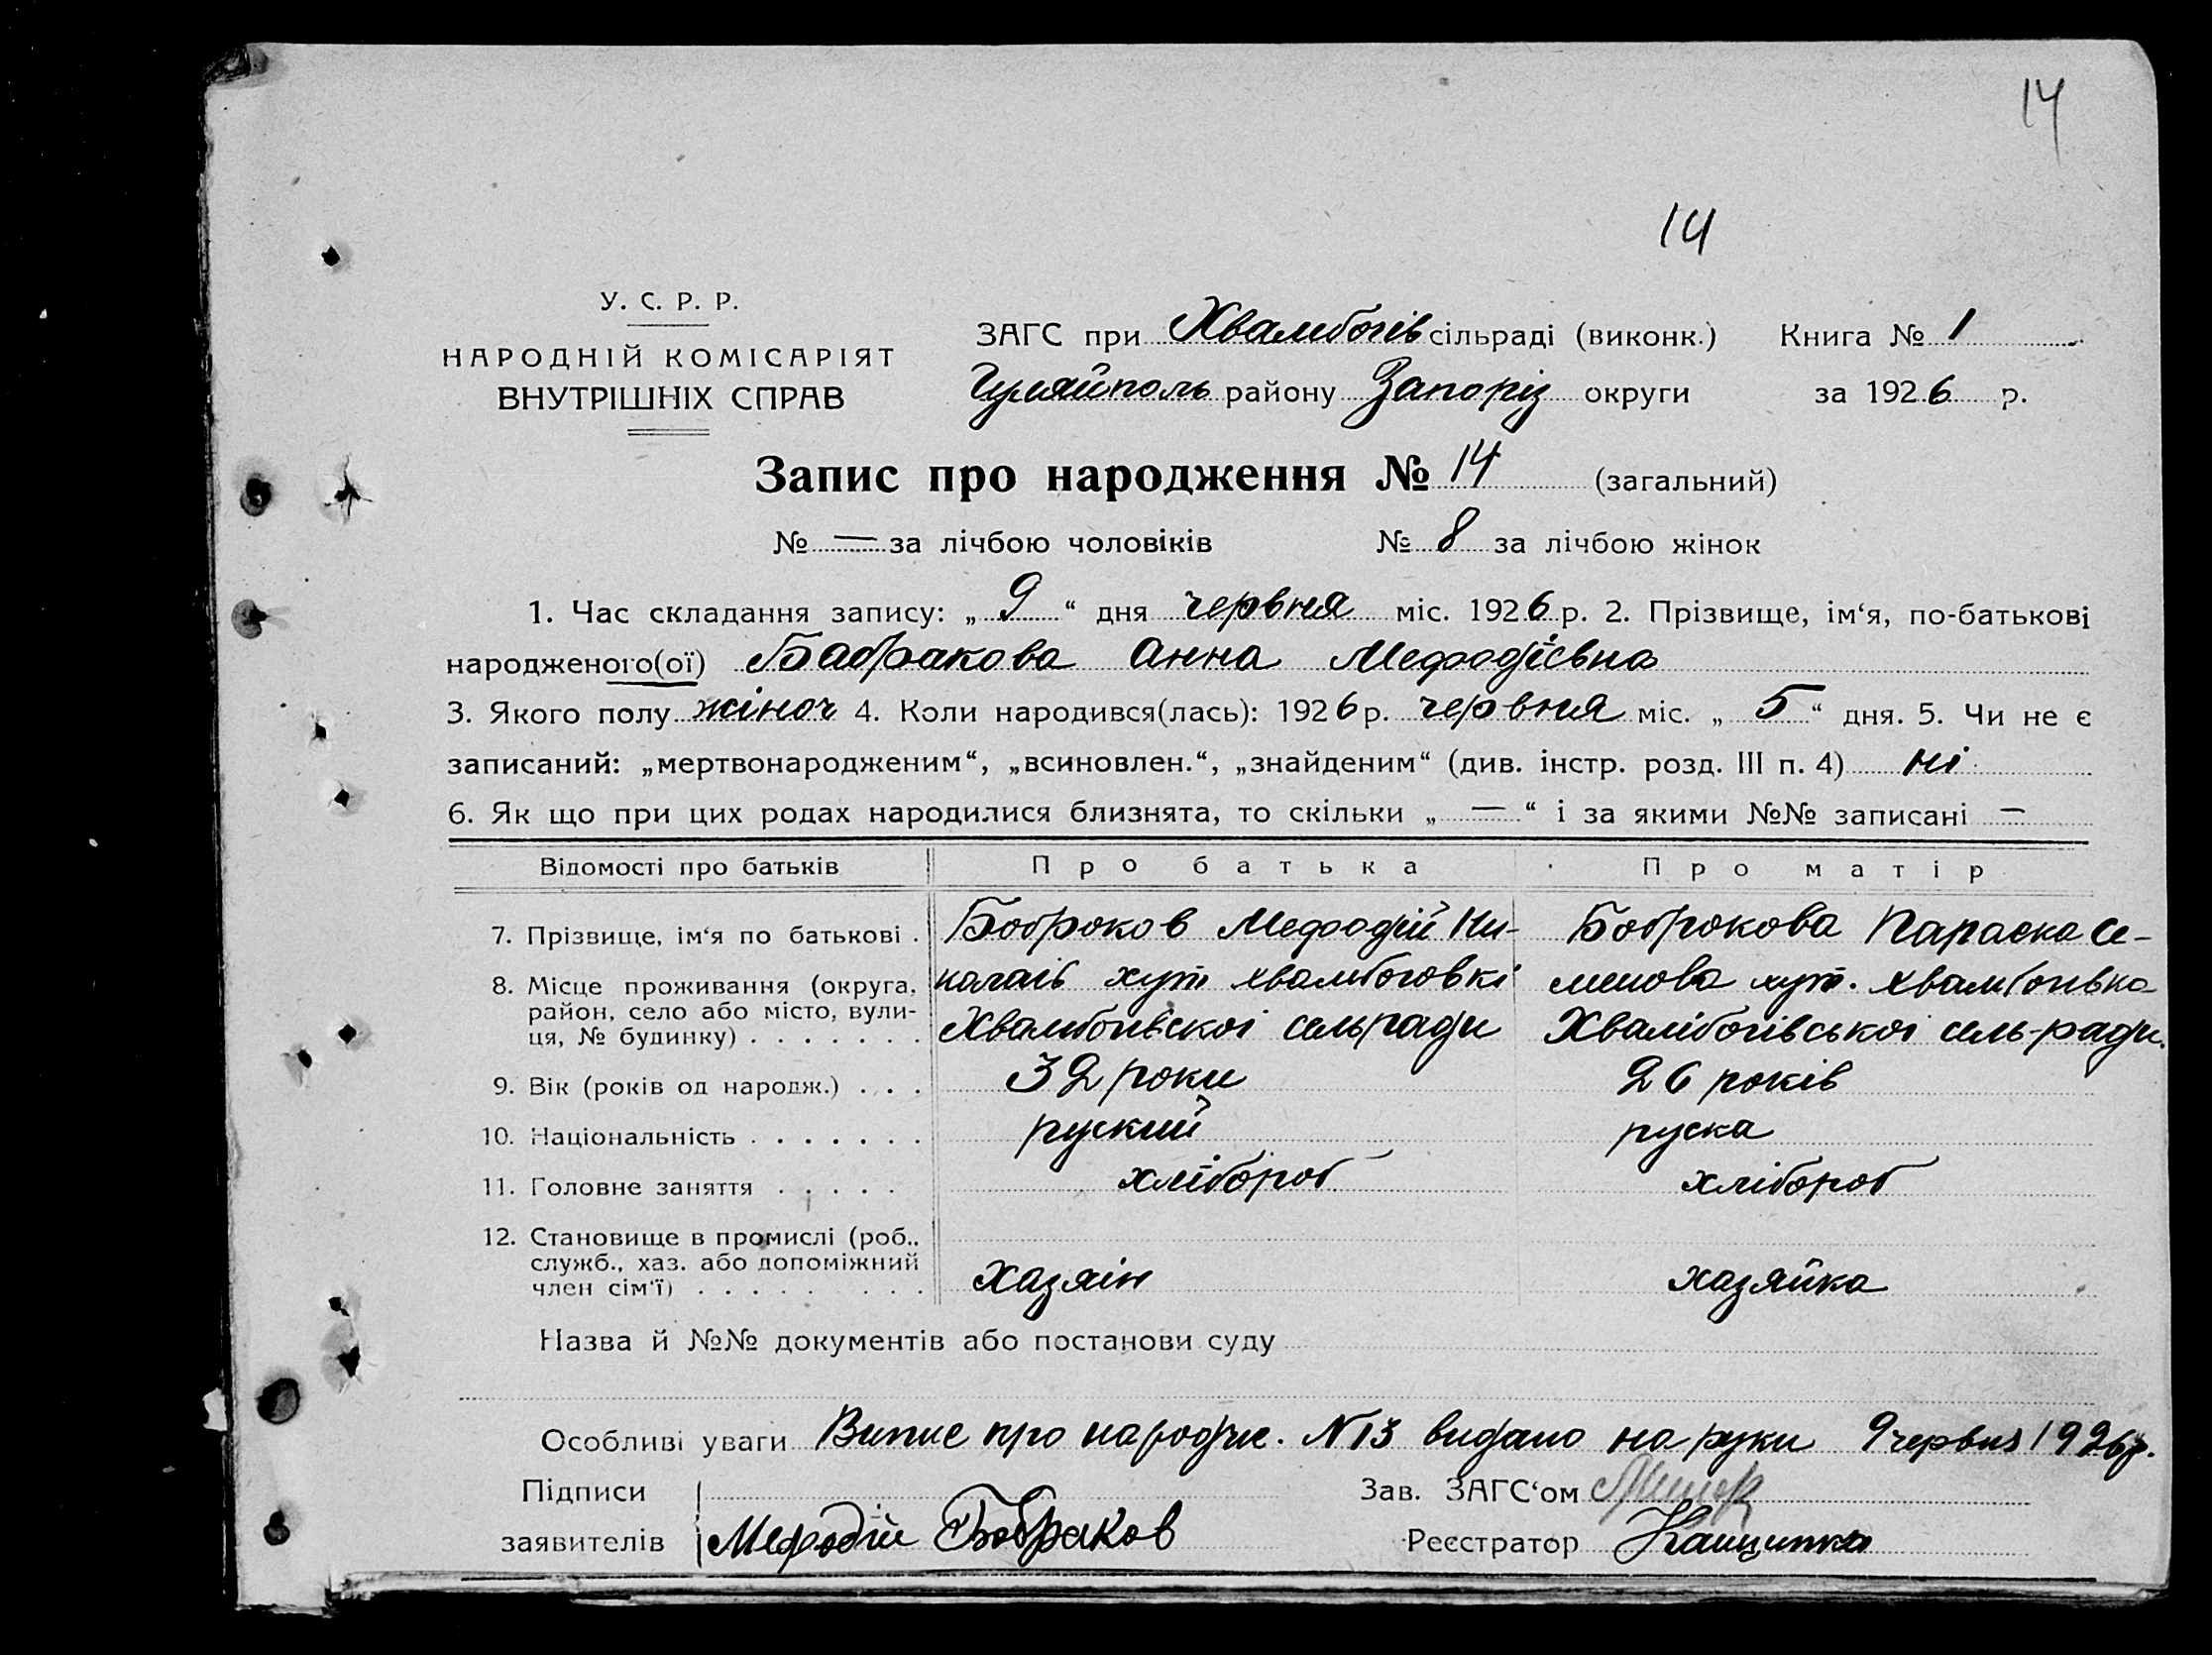 14
14
У. С. Р. Р.
НАРОДНІЙ КОМІСАРІЯТ
ВНУТРІШНІХ СПРАВ
ЗАГС при Хвалибогів сільраді (виконк.) Книга № 1
Гуляйполь району Запоріз округи за 1926 р.
Запис про народження № 14 (загальний)
№ — за лічбою чоловіків № 8 за лічбою жінок
1. Час складання запису: „ 9 “ дня червня міс. 1926 р. 2. Прізвище, ім‘я, по-батькові
народженого(ої) Бабракова Анна Мефодієвна
3. Якого полу жіноч 4. Коли народився(лась): 1926 р. червня міс. „ 5 “ дня. 5. Чи не є
записаний: „мертвонародженим“, „всиновлен.“, „знайденим“ (див. інстр. розд. III п. 4) ні
6. Як що при цих родах народилися близнята, то скільки „ — “ і за якими №№ записані —
Відомості про батьків Про батька Про матір
7. Прізвище, ім‘я по батькові . Боброков Мефодій Ни- Боброкова Параска Се-
8. Місце проживання (округа, колаїв хут Хвалибоговкі менова хут. Хвалибогівка
район, село або місто, вули- Хвалибогівскоі сельради Хвалибогівськоі сель-ради.
ця, № будинку) . . . . . . .
9. Вік (років од народж.) . . . 32 роки 26 років
10. Національність . . . . . . . руский руска
11. Головне заняття . . . . . хлібороб хлібороб
12. Становище в промислі (роб.,
служб., хаз. або допоміжний
член сім‘ї) . . . . . . . . Хазяін хазяйка
Назва й №№ документів або постанови суду
Особливі уваги Випис про народже. N 13 видано на руки 9 червня 1926 р.
Підписи Зав. ЗАГС‘ом
заявителів Мефодій Бобраков Реєстратор